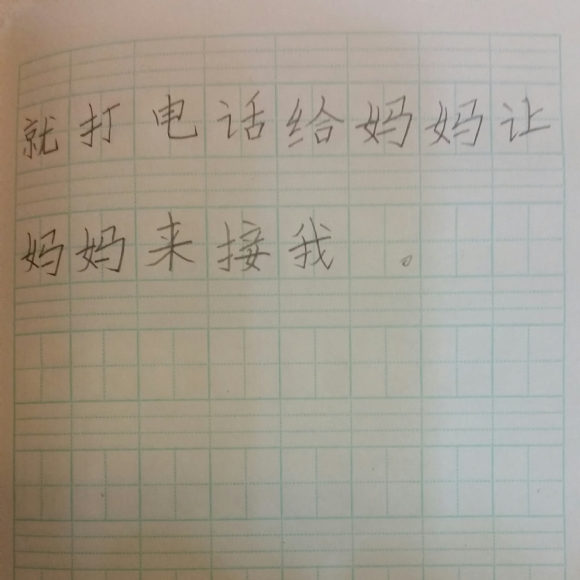 就打电话给妈妈让
妈妈来接我。